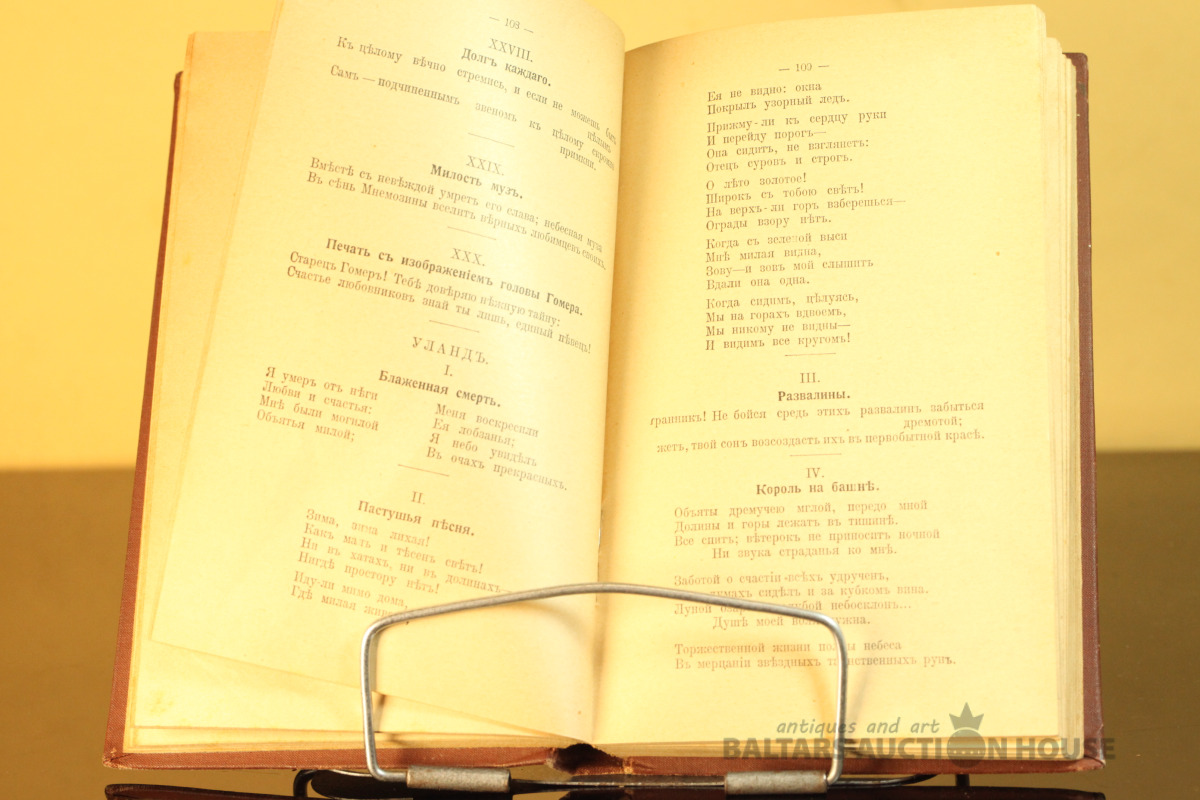 — 108 —
XXVIII.
Долгъ каждаго.
Къ цѣлому вѣчно стремись, и если не можешь быть
цѣлымъ
Самъ — подчиненнымъ звеномъ къ цѣлому скромно
примкни.
XXIX.
Милость музъ.
Вмѣстѣ съ невѣждой умретъ его слава; небесная муза
Въ сѣнь Мнемозины вселитъ вѣрныхъ любимцевъ своихъ.
XXX.
Печать съ изображеніемъ головы Гомера.
Старецъ Гомеръ! Тебѣ довѣряю нѣжную тайну:
Счастье любовниковъ знай ты лишь, единый пѣвецъ!
УЛАНДЪ.
I.
Блаженная смерть.
Я умеръ отъ нѣги
Любви и счастья:
Мнѣ были могилой
Объятья милой;
Меня воскресили
Ея лобзанья;
Я небо увидѣлъ
Въ очахъ прекрасныхъ.
II.
Пастушья пѣсня.
Зима, зима лихая!
Какъ малъ и тѣсенъ свѣтъ!
Ни въ хатахъ, ни въ долинахъ—
Нигдѣ простору нѣтъ!
Иду-ли мимо дома,
Гдѣ милая
— 109 —
Ея не видно: окна
Покрылъ узорный ледъ.
Прижму-ли къ сердцу руки
И перейду порогъ—
Она сидитъ, не взглянетъ:
Отецъ суровъ и строгъ.
О лѣто золотое!
Широкъ съ тобою свѣтъ!
На верхъ-ли горъ взберешься—
Ограды взору нѣтъ.
Когда съ зеленой выси
Мнѣ милая видна,
Зову—и зовъ мой слышитъ
Вдали она одна.
Когда сидимъ, цѣлуясь,
Мы на горахъ вдвоемъ,
Мы никому не видны—
И видимъ все кругомъ!
III.
Развалины.
транникъ! Не бойся средь этихъ развалинъ забыться
дремотой;
жетъ, твой сонъ возсоздастъ ихъ въ первобытной красѣ.
IV.
Король на башнѣ.
Объяты дремучею мглой, передо мной
Долины и горы лежатъ въ тишинѣ.
Все спитъ; вѣтерокъ не приноситъ ночной
Ни звука страданья ко мнѣ.
Заботой о счастіи всѣхъ удрученъ,
думахъ сидѣлъ и за кубкомъ вина.
Луной небосклонъ...
Душѣ моей
Торжественной жизни полны небеса
Въ мерцаніи звѣздныхъ таинственныхъ рунъ.
antiques and art
BALTARS AUCTION HOUSE